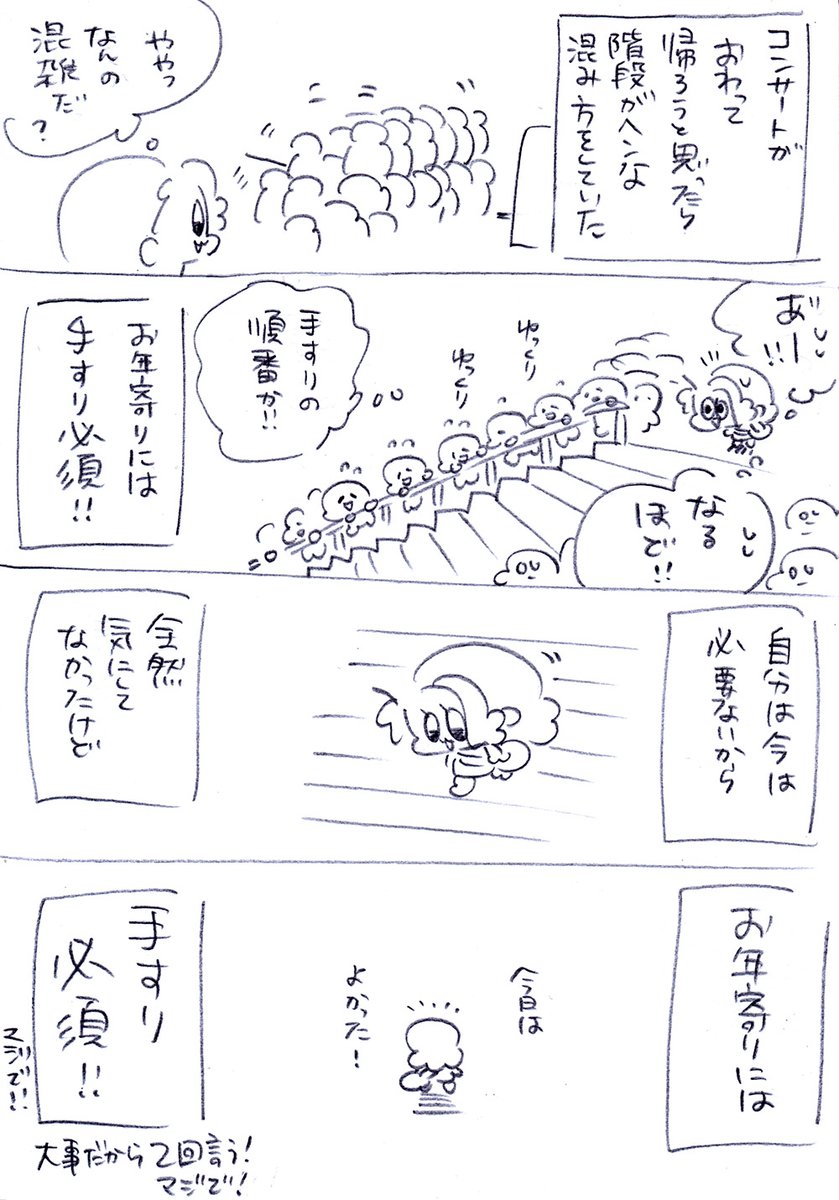 コンサートが
おわって
帰ろうと思ったら
階段がヘンな
混み方をしていた
ややっ
なんの
混雑だ?
あ"ー!!
なる
ほど!!
ゆっくり
ゆっくり
手すりの
順番か!!
お年寄りには
手すり必須!!
自分は今は
必要ないから
全然
気にして
なかったけど
お年寄りには
今日は
よかった!
手すり
必須!!
マジで!!
大事だから2回言う!
マジで!